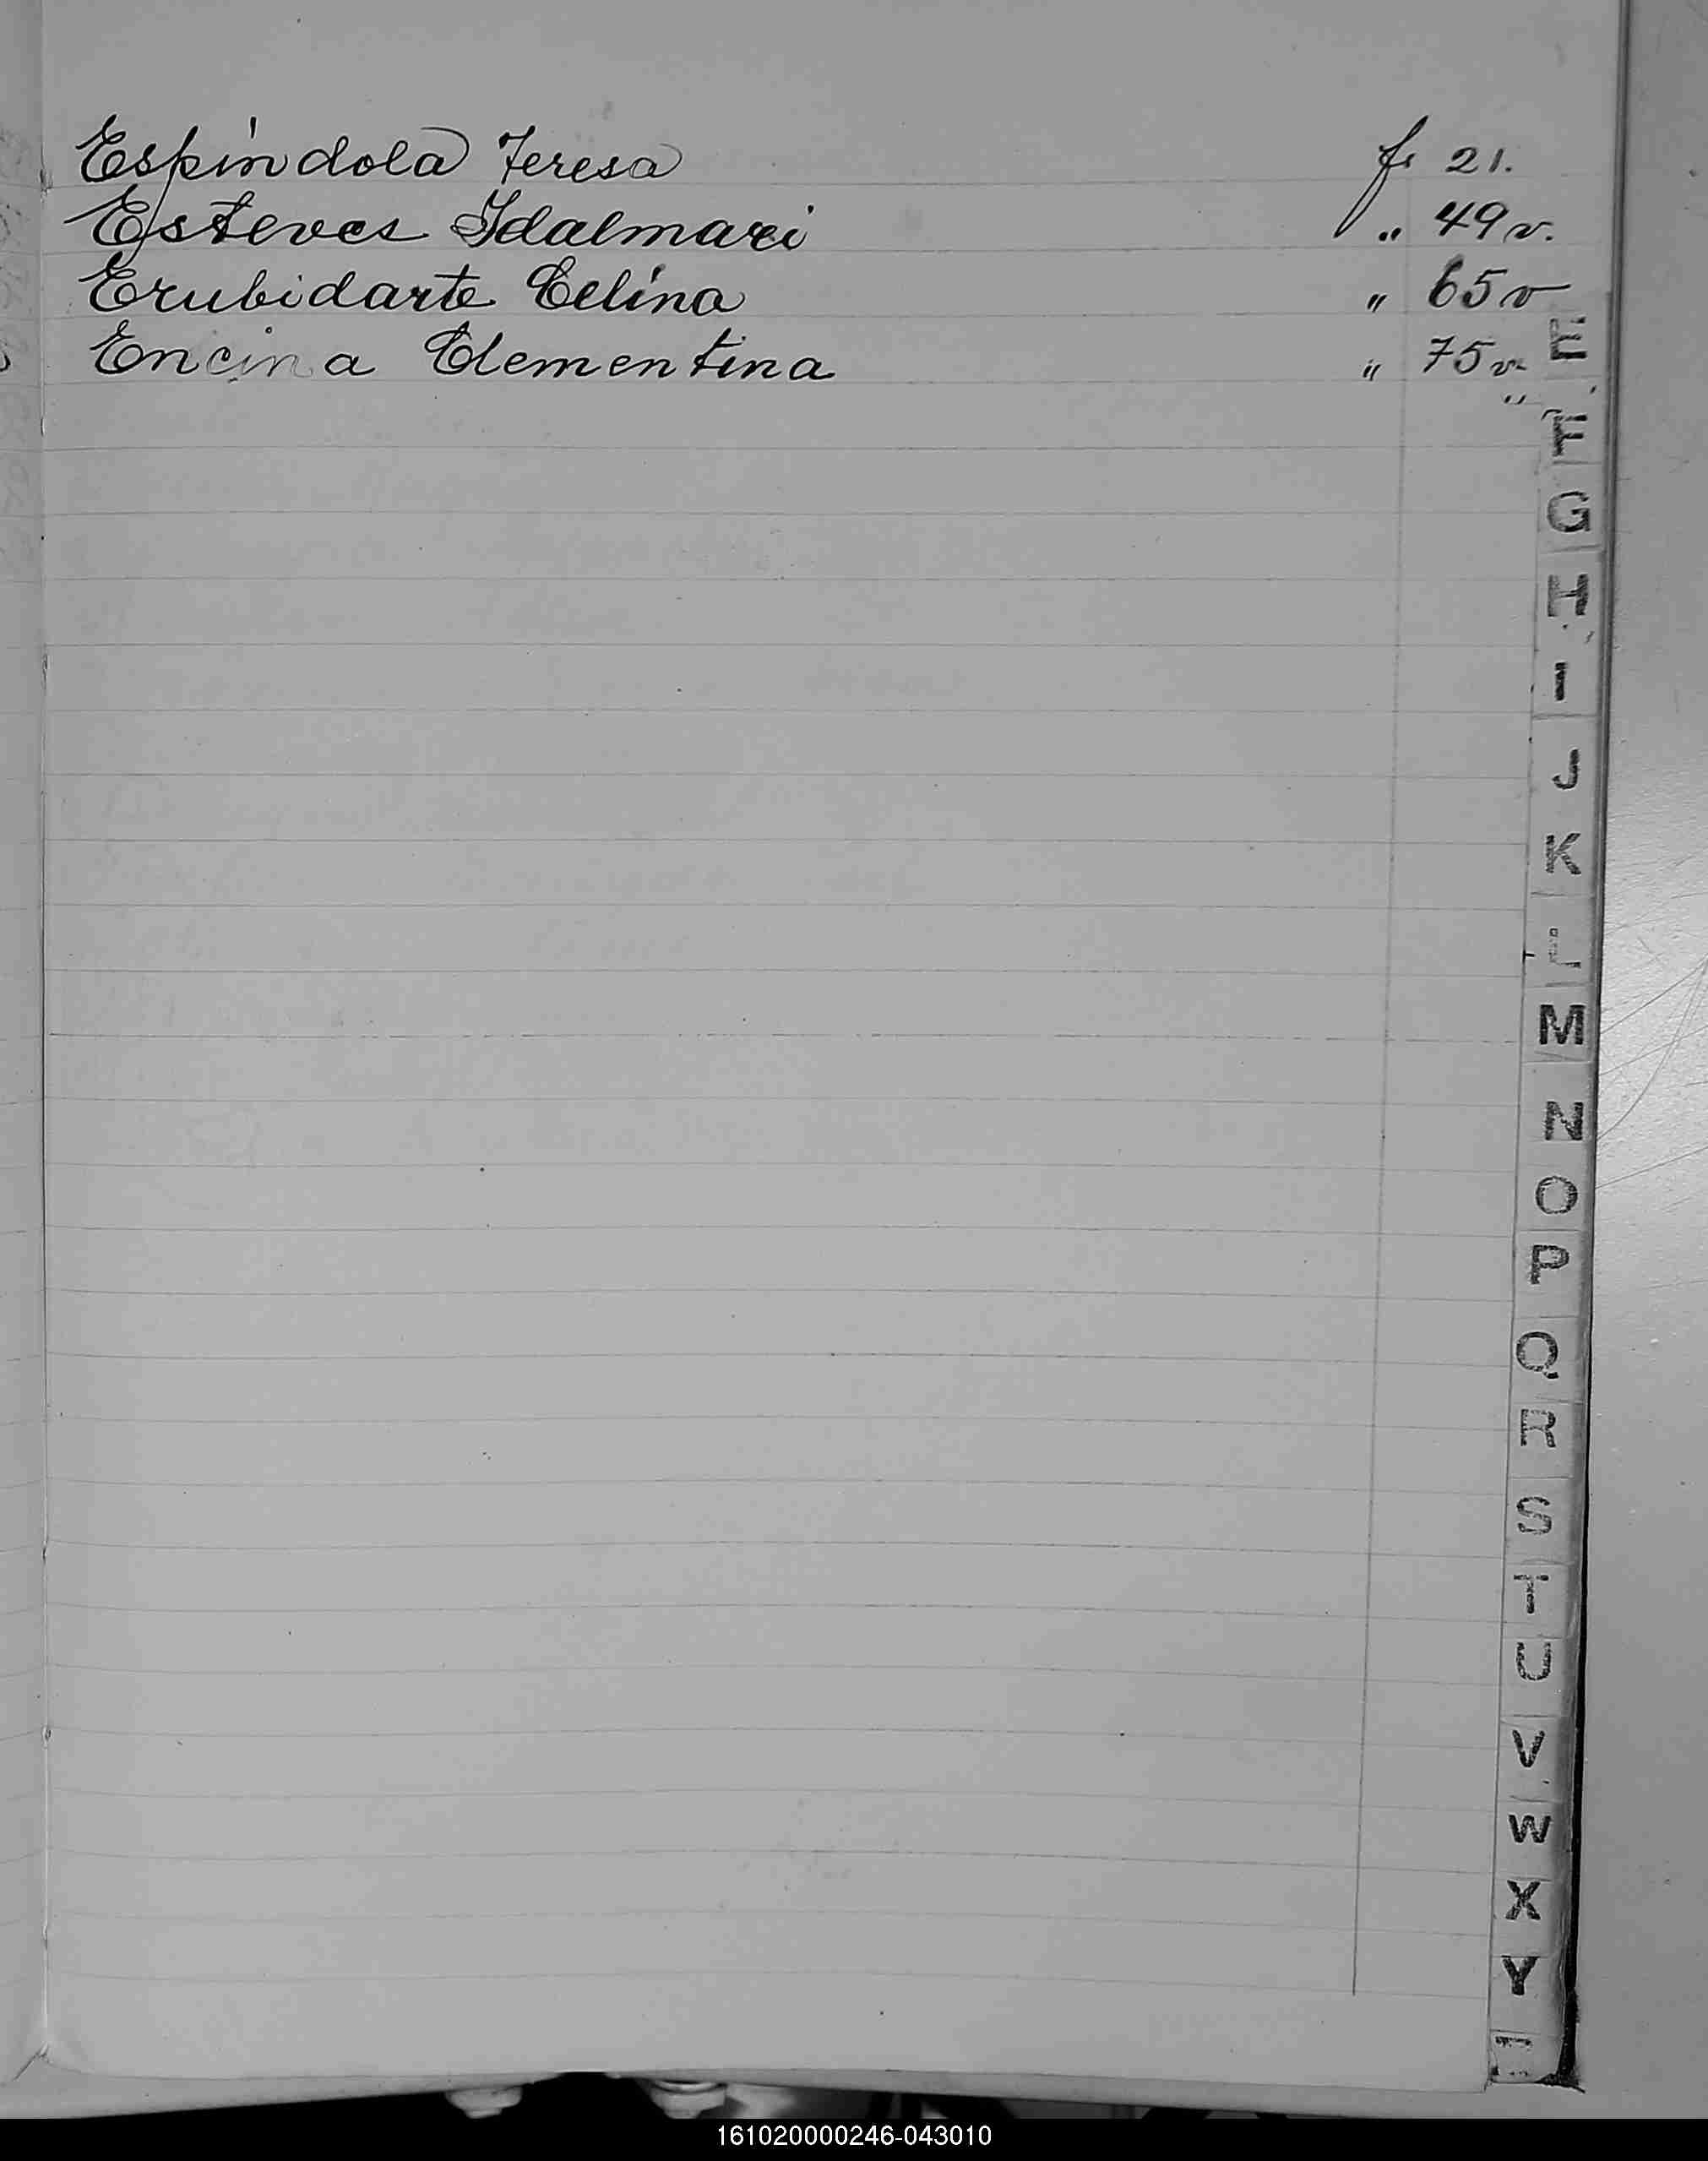 Espíndola Teresa fs 21.
Esteves Idalmari " 49 v.
Erubidarte Celina " 65 v
Encina Clementina " 75 v.
E
F
G
H
I
J
K
L
M
N
O
P
Q
R
S
T
U
V
W
X
Y
161020000246-043010